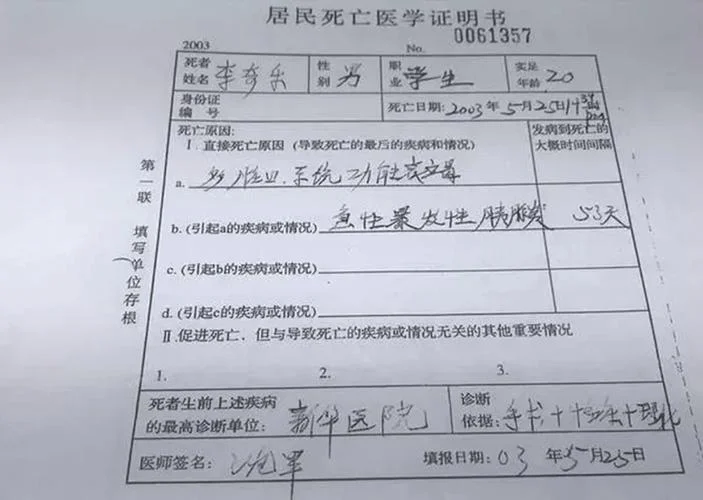 居民死亡医学证明书
2003 No. 0061357
死者姓名 李奇乐 性别 男 职业 学生 实足年龄 20
身份证编号 死亡日期: 2003年5月25日
死亡原因: 发病到死亡的大概时间间隔
Ⅰ. 直接死亡原因 (导致死亡的最后的疾病和情况)
a. 系统功能衰竭
b. (引起a的疾病或情况) 急性暴发性胰腺炎 53天
c. (引起b的疾病或情况)
d. (引起c的疾病或情况)
Ⅱ.促进死亡，但与导致死亡的疾病或情况无关的其他重要情况
1. 2. 3.
死者生前上述疾病的最高诊断单位: 新华医院 诊断依据: 手术+
医师签名: 填报日期: 03年5月25日
第一联 填写单位存根